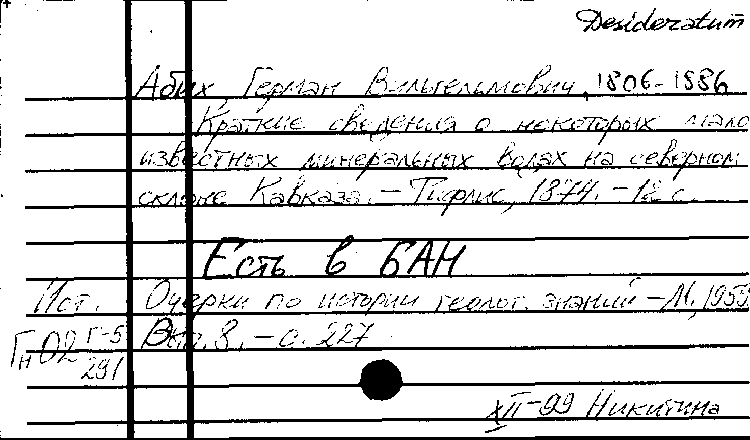 Desideratum
Абих, Герман Вильгельмович, 1806-1886
Краткие сведения о некоторых мало
известных минеральных водах на северном
склоне Кавказа. - Тифлис, 1874. - 12 с.
Есть в БАН
Ист. Очерки по истории геолог. знаний - М., 1959.
Вып. 8. - с. 227
Гн02 Г-5
291
XII-99 Никитина